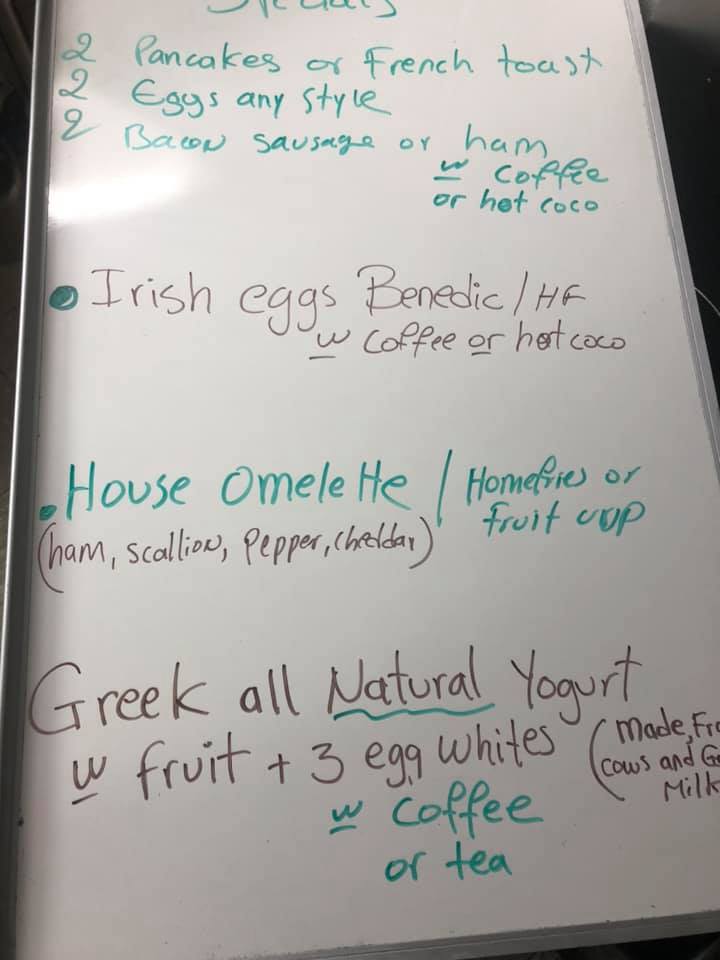 Specials
2 Pancakes or French toast
2 Eggs any style
2 Bacon sausage or ham
w coffee
or hot coco
• Irish eggs Benedic / HF
w coffee or hot coco
• House Omelette / Homefries or
fruit cup
(ham, scallion, Pepper, cheddar)
Greek all Natural Yogurt
w fruit + 3 egg whites (made, Fro
cows and Go
Milk
w coffee
or tea